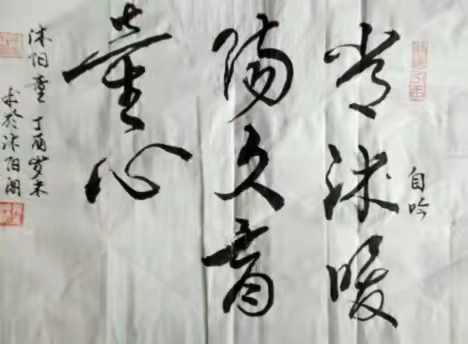 自吟
常沐暖
陽久育
童心
沐阳童 丁酉岁末
书於沐阳阁